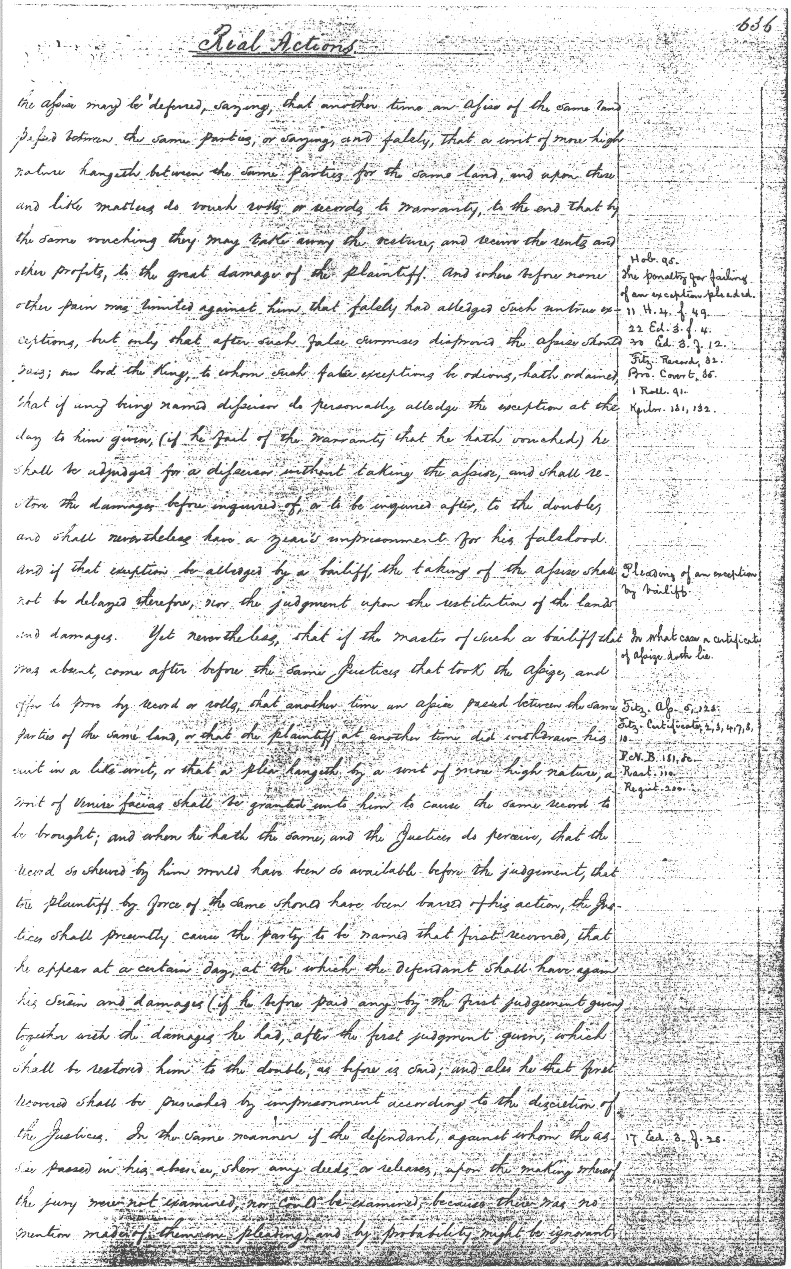 636
Real Actions
the assise may be deferred, saying, that another time an Assise of the same land
passed between the same parties, or saying, and falsely, that a writ of more high
nature hangeth between the same parties for the same land, and upon these
and like matters do vouch rolls or records to warranty, to the end that by
the same vouching they may take away the vesture, and receive the rents and
other profits, to the great damage of the plaintiff. And where before none
other pain was limited against him that falsely had alledged such untrue ex-
ceptions, but only that after such false surmises disproved the Assise should
pass; our lord the King, to whom such false exceptions be odious, hath ordained,
that if any being named disseisor do personally alledge the exception at the
day to him given, (if he fail of the warranty that he hath vouched) he
shall be adjudged for a disseisor without taking the assise, and shall re-
store the damages before inquired of, or to be inquired after, to the double,
and shall nevertheless have a year's imprisonment for his falshood.
And if that exception be alledged by a bailiff, the taking of the Assise shall
not be delayed therefore, nor the judgment upon the restitution of the lands
and damages. Yet nevertheless, that if the master of such a bailiff that
was absent, come after before the same Justices that took the Assize, and
offer to prove by record or rolls, that another time an assise passed between the same
parties of the same land, or that the plaintiff at another time did withdraw his
suit in a like writ, or that a plea hangeth by a writ of more high nature, a
writ of Venire facias shall be granted unto him to cause the same record to
be brought; and when he hath the same, and the Justices do perceive, that the
record so shewed by him would have been so available before the judgement, that
the plaintiff by force of the same should have been barred of his action, the Jus-
tices shall presently cause the party to be warned that first recovered, that
he appear at a certain day, at the which the defendant shall have again
his seisin and damages (if he before paid any by the first judgement given)
together with the damages he had, after the first judgment given, which
shall be restored him to the double, as before is said; and also he that first
recovered shall be punished by imprisonment according to the discretion of
the Justices. In the same manner if the defendant, against whom the as-
sise passed in his absence, shew any deeds or releases, upon the making whereof
the jury were not examined, nor could be examined, because there was no
mention made of them in pleading, and by probability might be ignorant
Hob. 95.
The penalty for failing
of an exception pleaded.
11 H. 4. f. 49.
22 Ed. 3. f. 4.
30 Ed. 3. f. 12.
Fitz. Record, 32.
Bro. Court, 35.
1 Roll. 91.
Keilw. 131, 132.
Pleading of an exception
by bailiff.
In what case a certificate
of Assize doth lie.
Fitz. As. 5, 128.
Fitz. Certificate, 2, 3, 4, 7, 8,
10.
F.N.B. 181, &c.
Rast. 110.
Regist. 200.
17 Ed. 3. f. 28.